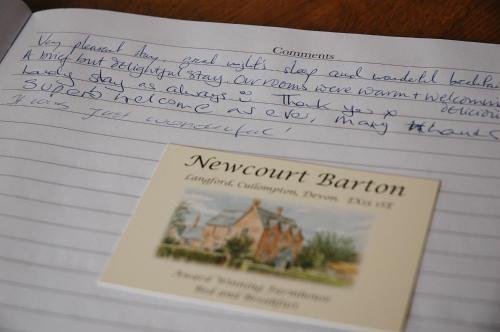 Comments
Very pleasant stay, good night's sleep and wonderful breakfast
A brief but delightful stay. Our rooms were warm + welcoming
delicious
Lovely stay as always Thank you x
Superb welcome as ever, many thanks
It was just wonderful!
Newcourt Barton
Langford, Cullompton, Devon. EX15 1SE
Award Winning Farmhouse
Bed and Breakfast